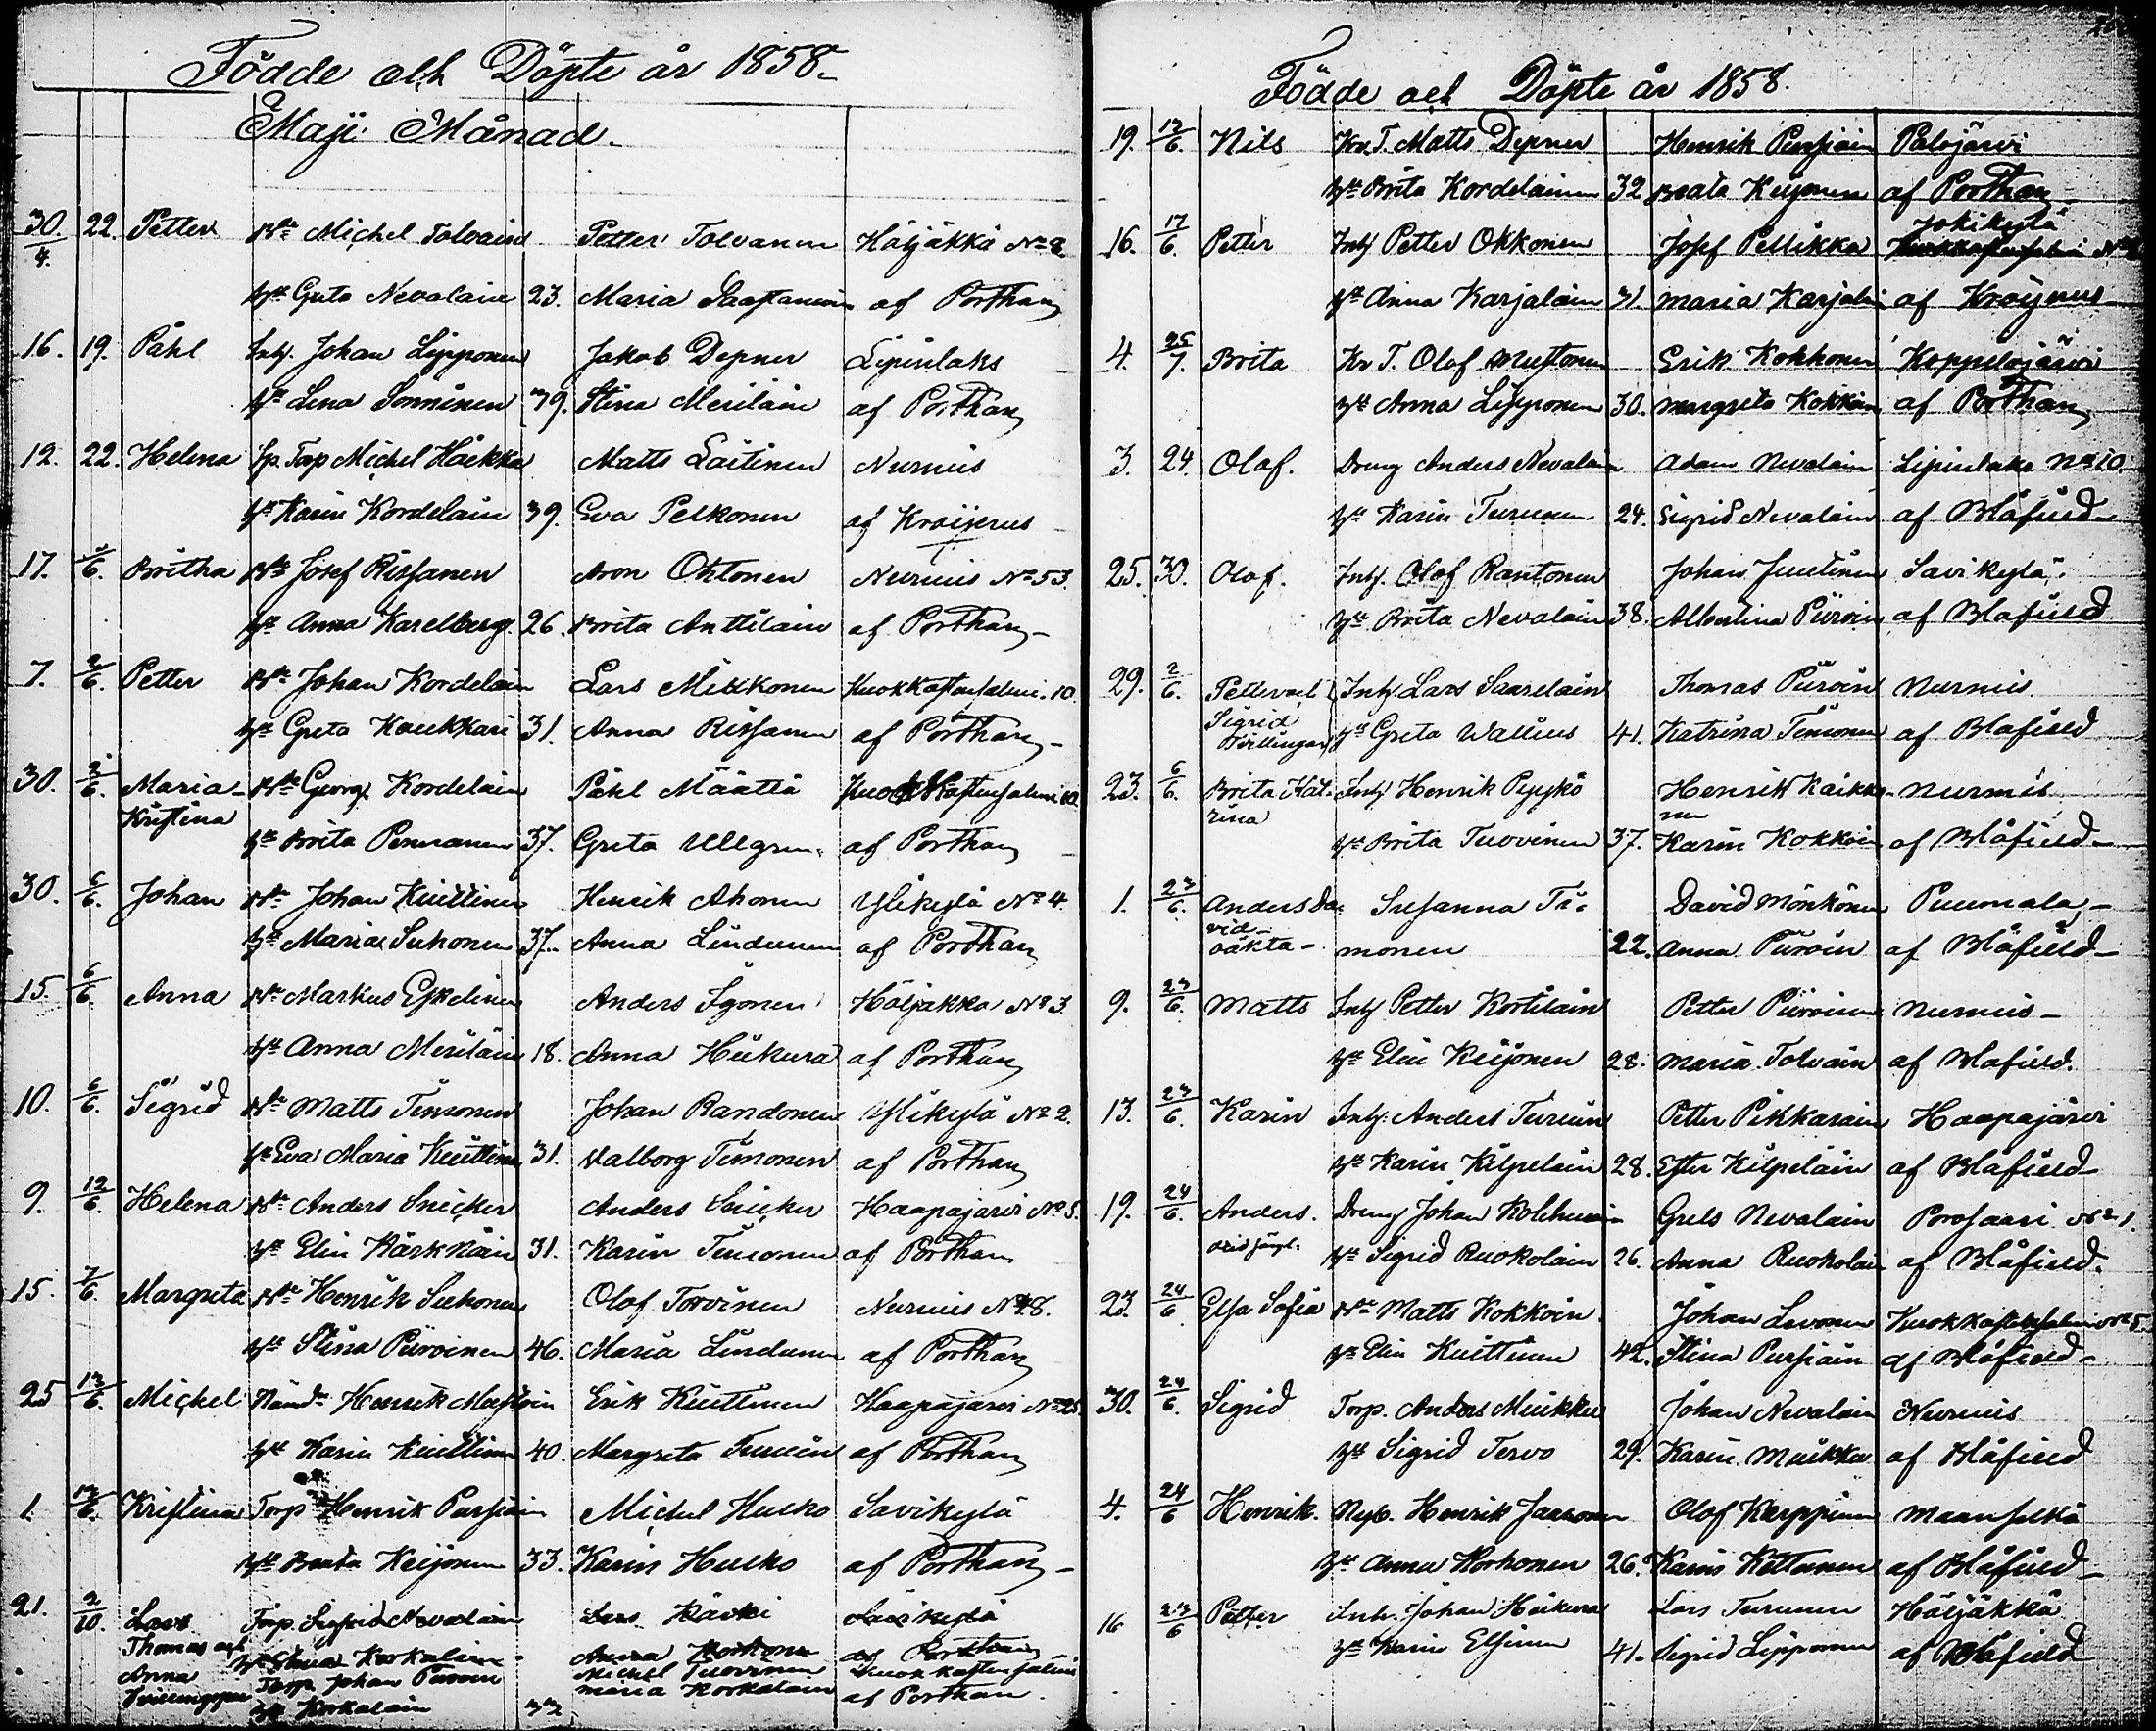 Födde och Döpte år 1858.
Maji Månad.
30/4. 22. Petter Bde Michel Tolvain Petter Tolvanen Höljäkkä No 2.
hu Greta Nevalain 23. Maria Saastamoin af Porthan
16. 19. Påhl Inh. Johan Lipponen Jakob Depner Lipinlaks
hu Lena Sonninen 39. Stina Meriläin af Porthan
12. 22. Helena Sp. Torp Michel Häikkä Matts Laitinen Nurmis
hu Karin Kordelain 39. Eva Pelkonen af Kröijerus
17. /6. Britha Bde Josef Rissanen Aron Ohtonen Nurmis No 53.
hu Anna Karelberg. 26. Brita Anttilain af Porthan
7. 2/6. Petter Bde Johan Kordelain Lars Mikkonen Kuokkastensalmi. 10.
hu Greta Kaukkari 31. Anna Rissanen af Porthan
30. 2/6. Maria Bde Georg Kordelain Påhl Määttä Kuokkastensalmi 10
Kristina
hu Brita Pennanen 37. Greta Ullgren af Porthan
30. 6/6. Johan Bde Johan Kuittinen Henrik Ahonen Ylikylä No 4.
hu Maria Suhonen 37. Anna Lindunen af Porthan
15. 6/6. Anna Bde Markus Eskelinen Anders Igonen Höljäkkä No 3.
hu Anna Meriläin 18. Anna Heikura af Porthan
10. 6/6. Sigrid Bde Matts Timonen Johan Randonen Ylikylä No 2.
hu Eva Maria Kuittinen 31. Walborg Timonen af Porthan
9. 12/6. Helena Bde Anders Snicker Anders Snicker Haapajärvi No 5.
hu Elin Kärkkäin 31. Karin Timonen af Porthan
15. 7/6. Margreta Bde Henrik Suhonen Olof Torvinen Nurmis No 48.
hu Stina Piiroinen 46. Maria Lindunen af Porthan
25 13/6. Michel Nämd. Henrik Mustoin Erik Kuittinen Haapajärvi No 25.
hu Karin Kuittinen 40. Margreta Turuin af Porthan
1. 13/6. Kristina Torp Henrik Pursiain Michel Hulko Savikylä
hu Beata Keijonen 33. Karin Hulko af Porthan
21. 2/10. Lars Torp. Nevalain Lars Savikylä
Thomas och hu Stina Korkalain Anna Korhonen af Porthan
Anna Torp Johan Piiroin Michel Tuovinen Kuokkastensalmi
Tvillingar hu Korkalain 33 Maria Korkalain af Porthan.
Födde och Döpte år 1858.
19. 13/6. Nils Kr. T. Matts Depner Henrik Pursiain Palojärvi
hu Brita Kordelainen 32 Beata Keijonen af Porthan
Jokikylä
16. 17/6. Petter Inh Petter Okkonen Josef Pellikka Kuokkastensalmi No
hu Anna Karjalain 31. Maria Karjalain af Kröijerus
4. 25/7. Brita Kr T. Olof Mustonen Erik Kokkonen Koppelojärvi
hu Anna Lipponen 30. Margreta Kokkoin af Porthan
3. 24. Olof. Dreng Anders Nevalain Adam Nevalain Lipinlaks No 10
hu Karin Turunen 24. Sigrid Nevalain af Blåfield
25. 30. Olof. Inh. Olof Rantonen Johan Juutinen Savikylä.
hu Brita Nevalain 38. Albertina Piiroin af Blåfield
29. 2/6. Petter och Inh Lars Saarelain Thomas Piiroin Nurmis
Sigrid
Tvillingar hu Greta Wallius 41. Katrina Timonen af Blåfield
23. 6/6. Brita Kat- Inh Henrik Pyykö Henrik Kaikko- Nurmis
rina nen
hu Brita Tuovinen 37. Karin Kokkoin af Blåfield
1. 23/6. Anders Da- Susanna Ti- David Mönkönen Puumala,
vid
oäkta monen 22. Anna Piiroin af Blåfield
9. 23/6. Matts Inh Petter Kortelain Petter Piiroinen Nurmis
hu Elin Keijonen 28. Maria Tolvain af Blåfield.
13. 23/6. Karin Inh. Anders Turuin Petter Pikkarain Haapajärvi
hu Karin Kilpelain 28. Ester Kilpeläin af Blåfield
19. 24/6. Anders. Dreng Johan Kolehmain Grels Nevalain Porosaari No 1.
hu Sigrid Ruokolain 26. Anna Ruokolain af Blåfield.
23. 24/6. Elsa Sofia Bde Matts Kokkoin Johan Lavonen Kuokkastensalmi No 5.
hu Elin Kuittinen 42. Stina Pursiain af Blåfield
30. 24/6. Sigrid Torp. Anders Muikku Johan Nevalain Nurmis
hu Sigrid Tervo 29. Karin Muikku af Blåfield
4. 24/6. Henrik. Nyb. Henrik Jaaronen Olof Karppinen Maanselkä
hu Anna Korhonen 26. Karin Kettunen af Blåfield
16 23/6 Petter Inh. Johan Heikura Lars Turunen Höljäkkä
hu Karin Elsinen 41. Sigrid Lipponen af Blåfield